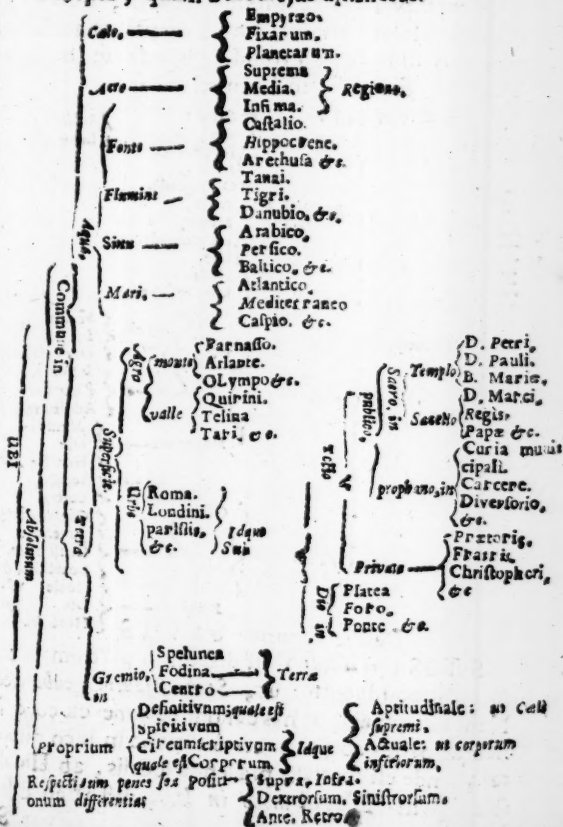 Cœlo.
Empyræo.
Fixarum.
Planetarum.
Aere
Suprema
Media.
Infima.
Regione.
Aqua.
Fonte
Castalio.
Hippocrene.
Arethusa &c.
Flumine
Tanai.
Tigri.
Danubio, &c.
Sinu
Arabico,
Persico.
Baltico, &c.
Mari.
Atlantico,
Mediterraneo
Caspio. &c.
UBI
Absolutum
Commune in
Terra
Superficie
Agro
monte
Parnasso.
Atlante.
OLympo &c.
valle
Quirini.
Telina
Urbe
Roma.
Londini.
parisiis,
&c.
Idque
Sub
Tecto
publico,
Sacro, in
Templo
D. Petri,
D. Pauli.
B. Mariæ,
Sacello
D. Marci,
Regis,
Papæ &c.
prophano, in
Curia muni
cipali.
Carcere.
Diversorio,
&c.
Privato
Prætoris,
Fratris,
Christopheri,
&c
Dio in
Platea
Foro,
Ponte &c.
Gremio,
in
Spelunca
Fodina
Centro
Terræ
Proprium
Definitivum; quale est
spirituum
Circumscriptivum
quale est Corporum.
Idque
Aptitudinale: ut Cœli
supremi,
Actuale: ut corporum
inferiorum,
Respectivum penes sex positi-
onum differentias
Supra, Infra.
Dextrorsum, Sinistrorsum,
Ante, Retro